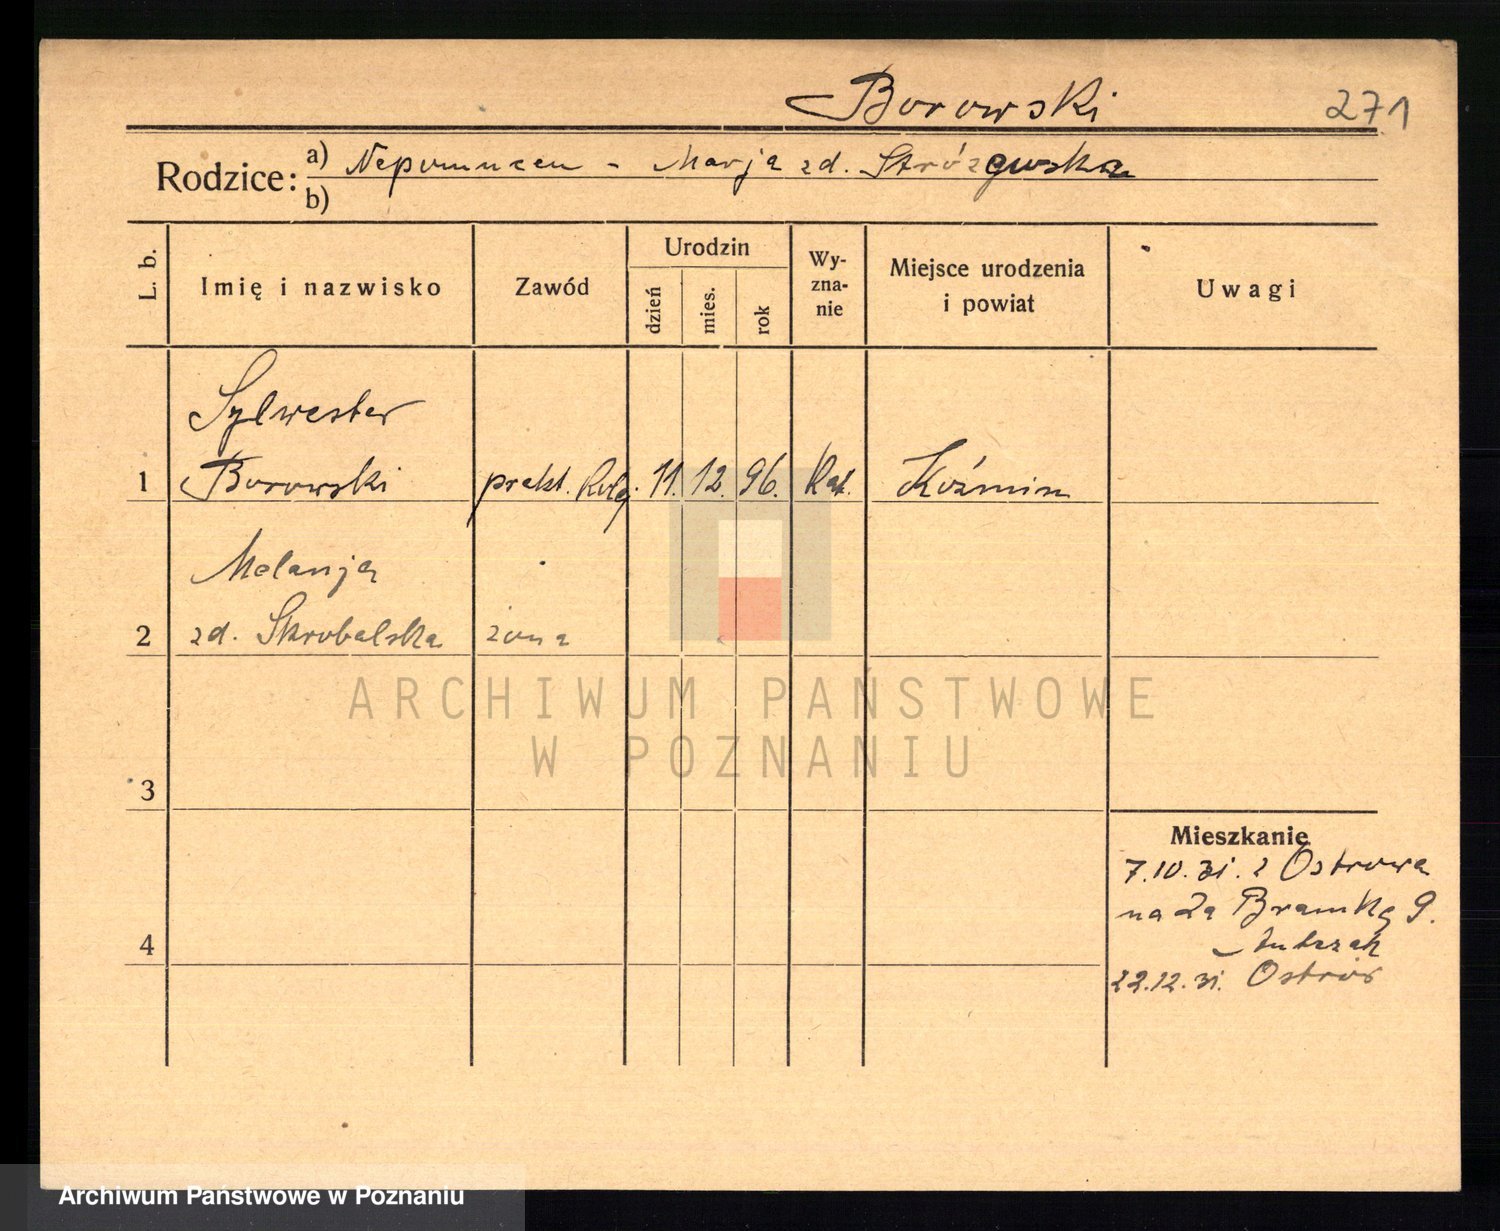 Borowski 271
Rodzice: a) Nepomucen - Marja zd. Stróżewska
b)
L. b. Imię i nazwisko Zawód Urodzin dzień mies. rok Wyznanie Miejsce urodzenia i powiat Uwagi
Sylwester
1 Borowski prakt. kolej. 11. 12. 96. Kat. Koźmin
Melanja
2 zd. Skrobalska żona
ARCHIWUM PAŃSTWOWE
W POZNANIU
3
Mieszkanie
7.10.31. z Ostrowa
na Za Bramką 9.
4
22.12.31. Ostrów
Archiwum Państwowe w Poznaniu